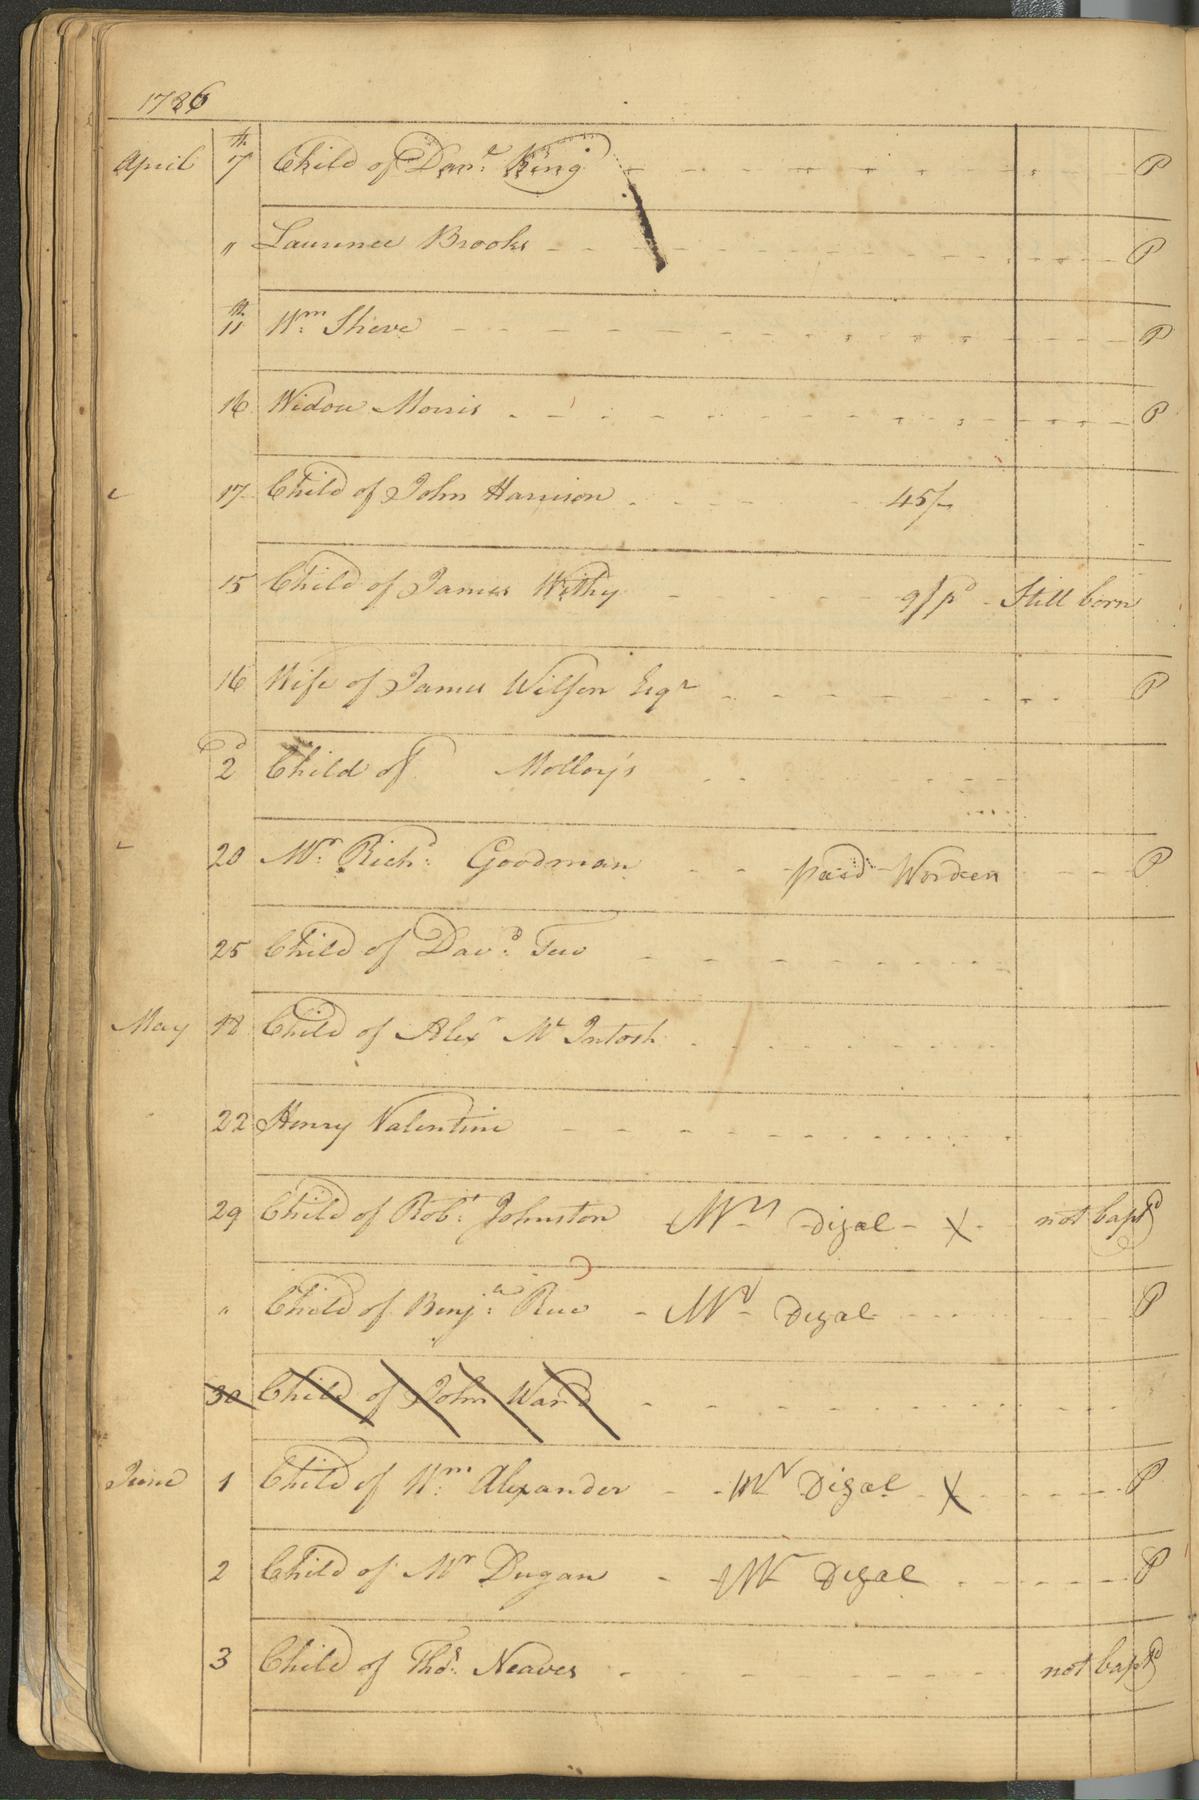 1786
April 7th Child of Danl. King P
" Laurence Brooks P
11th Wm. Shive P
16 Widow Morris P
17 Child of John Harrison 45/-
15 Child of James Withy 9/pd Still born
16 Wife of James Wilson Esqr P
2d Child of Molloy's
20 Mr. Richd. Goodman paid Worden P
25 Child of Davd. Tew
May 18 Child of Alexr Mc Intosh
22 Henry Valentine
29 Child of Robt. Johnston Mrs Digal X not baptd
" Child of Benja. Rue Mrs Digal P
30 Child of John Ward
June 1 Child of Wm. Alexander Mrs Digal X P
2 Child of Mr Dugan Mrs Digal P
3 Child of Thos. Neaves not baptd